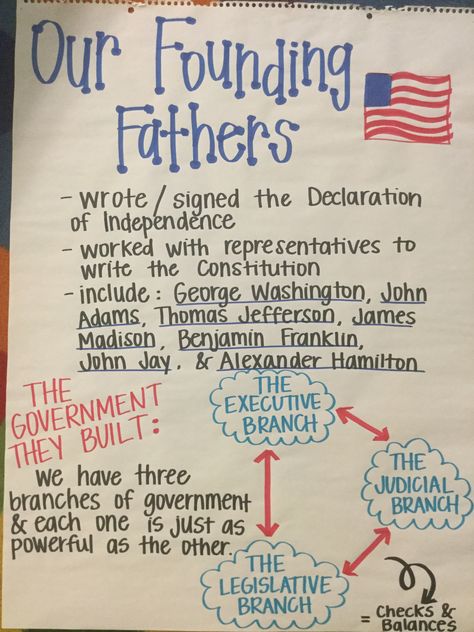 Our Founding
Fathers
- wrote/signed the Declaration
of Independence
- worked with representatives to
write the Constitution
- include: George Washington, John
Adams, Thomas Jefferson, James
Madison, Benjamin Franklin,
John Jay, & Alexander Hamilton
THE
GOVERNMENT
THEY BUILT:
we have three
branches of government
& each one is just as
powerful as the other.
THE
EXECUTIVE
BRANCH
THE
JUDICIAL
BRANCH
THE
LEGISLATIVE
BRANCH
= Checks &
Balances